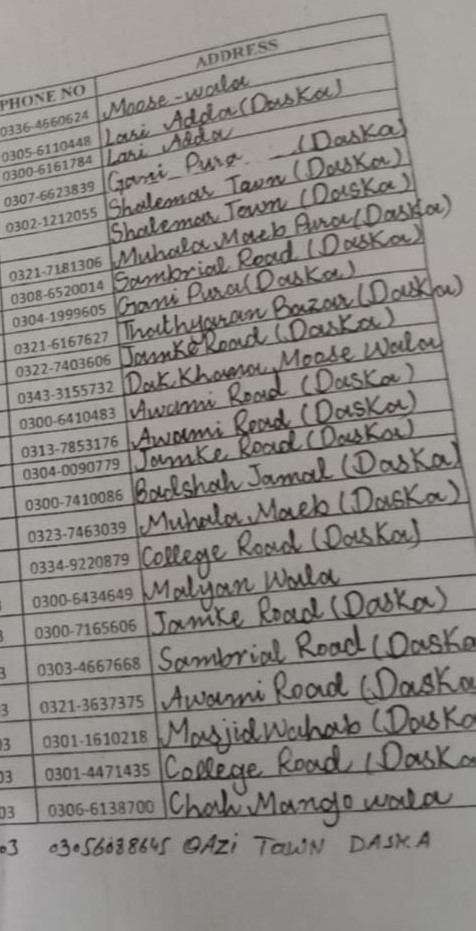 PHONE NO ADDRESS
0336-4660624 Moose-wala
0305-6110448 Lari Adda (Daska)
0300-6161784 Lari Adda
0307-6623839 Gani Pura (Daska)
0302-1212055 Shalemar Town (Daska)
Shalemar Town (Daska)
0321-7181306 Muhala Maeb Pura (Daska)
0308-6520014 Sambrial Road (Daska)
0304-1999605 Gani Pura (Daska)
0321-6167627 Thathyaran Bazar (Daska)
0322-7403606 Jamke Road (Daska)
0343-3155732 Dak Khana Moose Wala
0300-6410483 Awami Road (Daska)
0313-7853176 Awami Road (Daska)
0304-0090779 Jamke Road (Daska)
0300-7410086 Badshah Jamal (Daska)
0323-7463039 Muhala Maeb (Daska)
0334-9220879 College Road (Daska)
0300-6434649 Malyan Wala
3 0300-7165606 Jamke Road (Daska)
3 0303-4667668 Sambrial Road (Daska
3 0321-3637375 Awami Road (Daska
03 0301-1610218 Masjid Wahab (Daska
03 0301-4471435 College Road (Daska
03 0306-6138700 Chah Mango wala
03 03056088645 QAZI TOWN DASKA